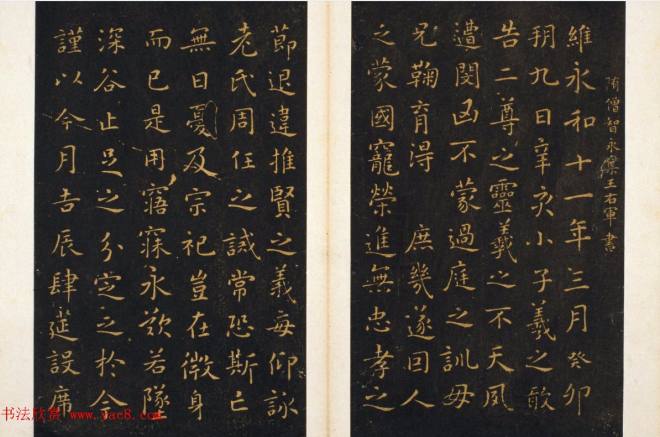 隋僧智永臨王右軍書
維永和十一年三月癸卯
朔九日辛亥小子羲之敢
告二尊之靈羲之不天夙
遭閔凶不蒙過庭之訓母
兄鞠育得庶幾遂因人
之蒙國寵榮進無忠孝之
節退違推賢之義每仰詠
老氏周任之誡常恐斯亡
無日憂及宗祀豈在微身
而已是用寤寐永歎若墜
深谷止足之分定之於今
謹以今月吉辰肆筵設席
书法欣赏 www.yac8.com